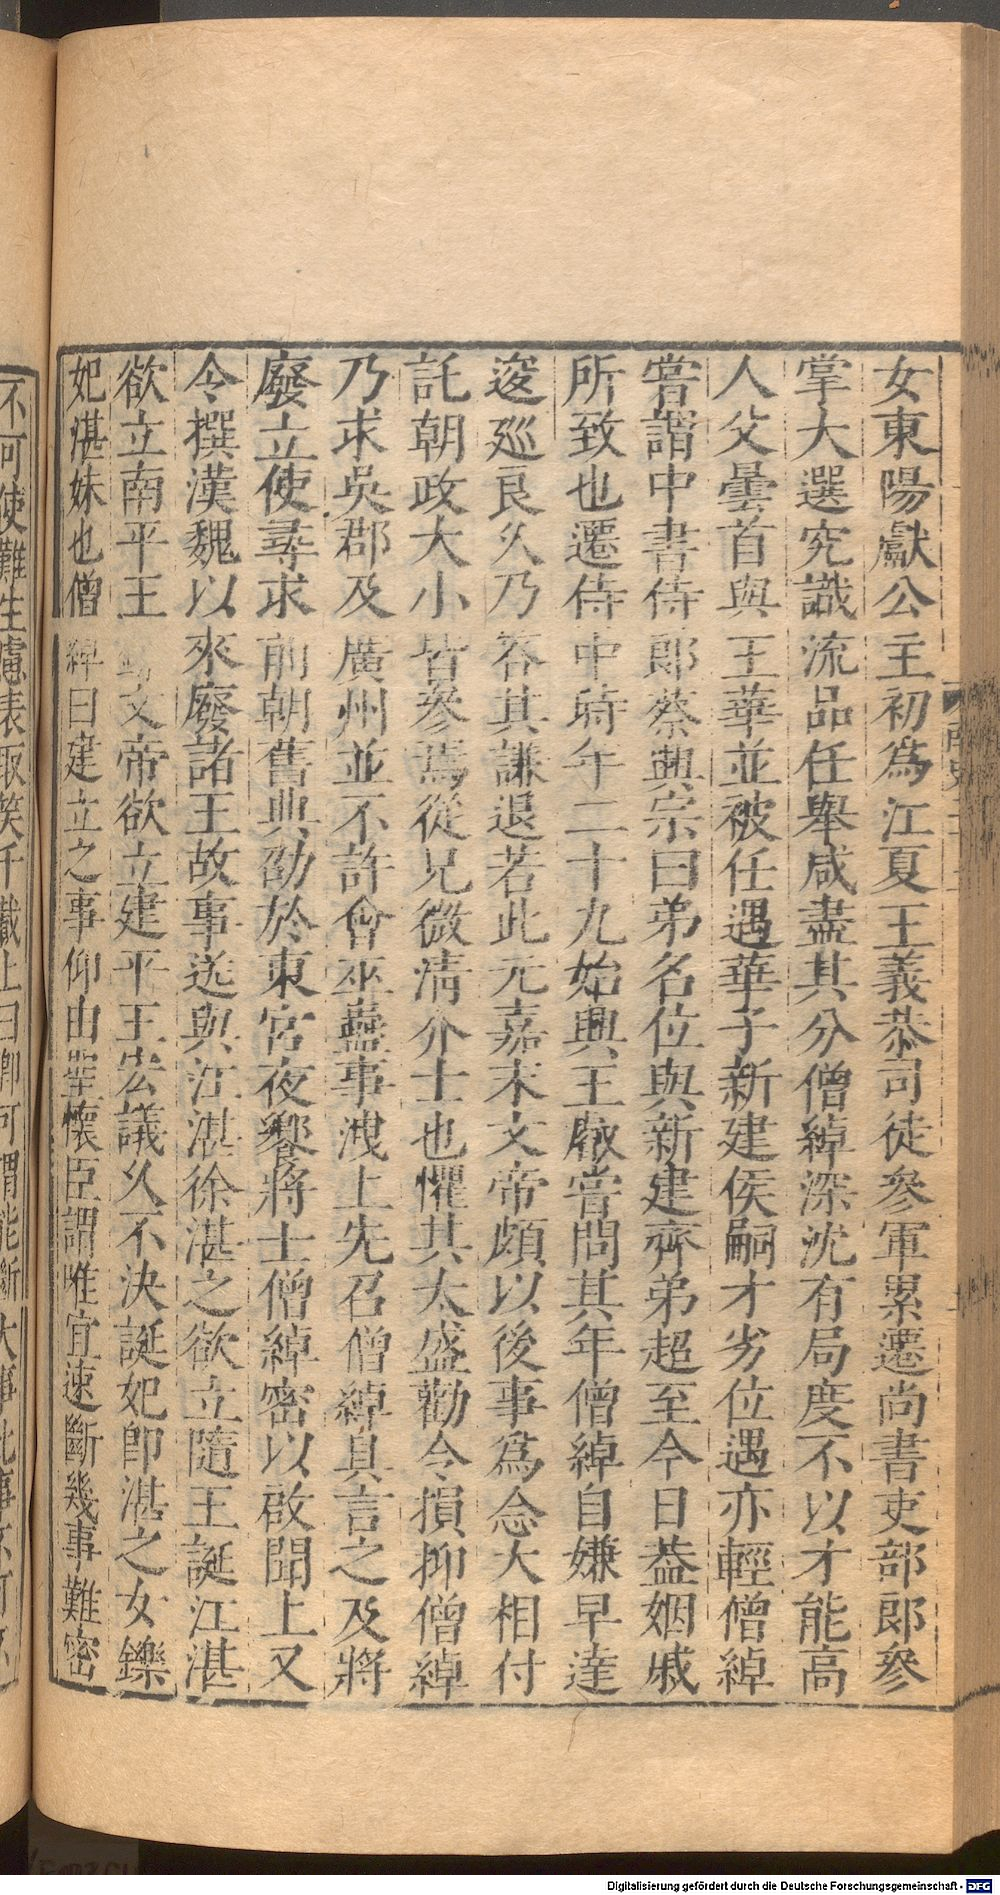 女東陽獻公主初爲江夏王義恭司徒參軍累遷尚書吏部郎參
掌大選究識流品任舉咸盡其分僧綽深沈有局度不以才能高
人父曇首與王華並被任遇華子新建侯嗣才劣位遇亦輕僧綽
嘗謂中書侍郎蔡興宗曰弟名位與新建齊弟超至今日益姻戚
所致也遷侍中時年二十九始興王濬嘗問其年僧綽自嫌早達
逡巡良久乃答其謙退若此元嘉末文帝頗以後事爲念大相付
託朝政大小皆參焉從兄微清介士也懼其太盛勸令損抑僧綽
乃求吳郡及廣州並不許會巫蠱事洩上先召僧綽具言之及將
廢立使尋求前朝舊典劭於東宮夜饗將士僧綽密以啟聞上又
令撰漢魏以來廢諸王故事送與江湛徐湛之欲立隨王誕江湛
欲立南平王鑠文帝欲立建平王宏議久不決誕妃卽湛之女鑠
妃湛妹也僧綽曰建立之事仰由聖懷臣謂唯宜速斷幾事難密
不可使難生慮表取笑千載上曰卿可謂能斷大事此事不可不
Digitalisierung gefördert durch die Deutsche Forschungsgemeinschaft - DFG